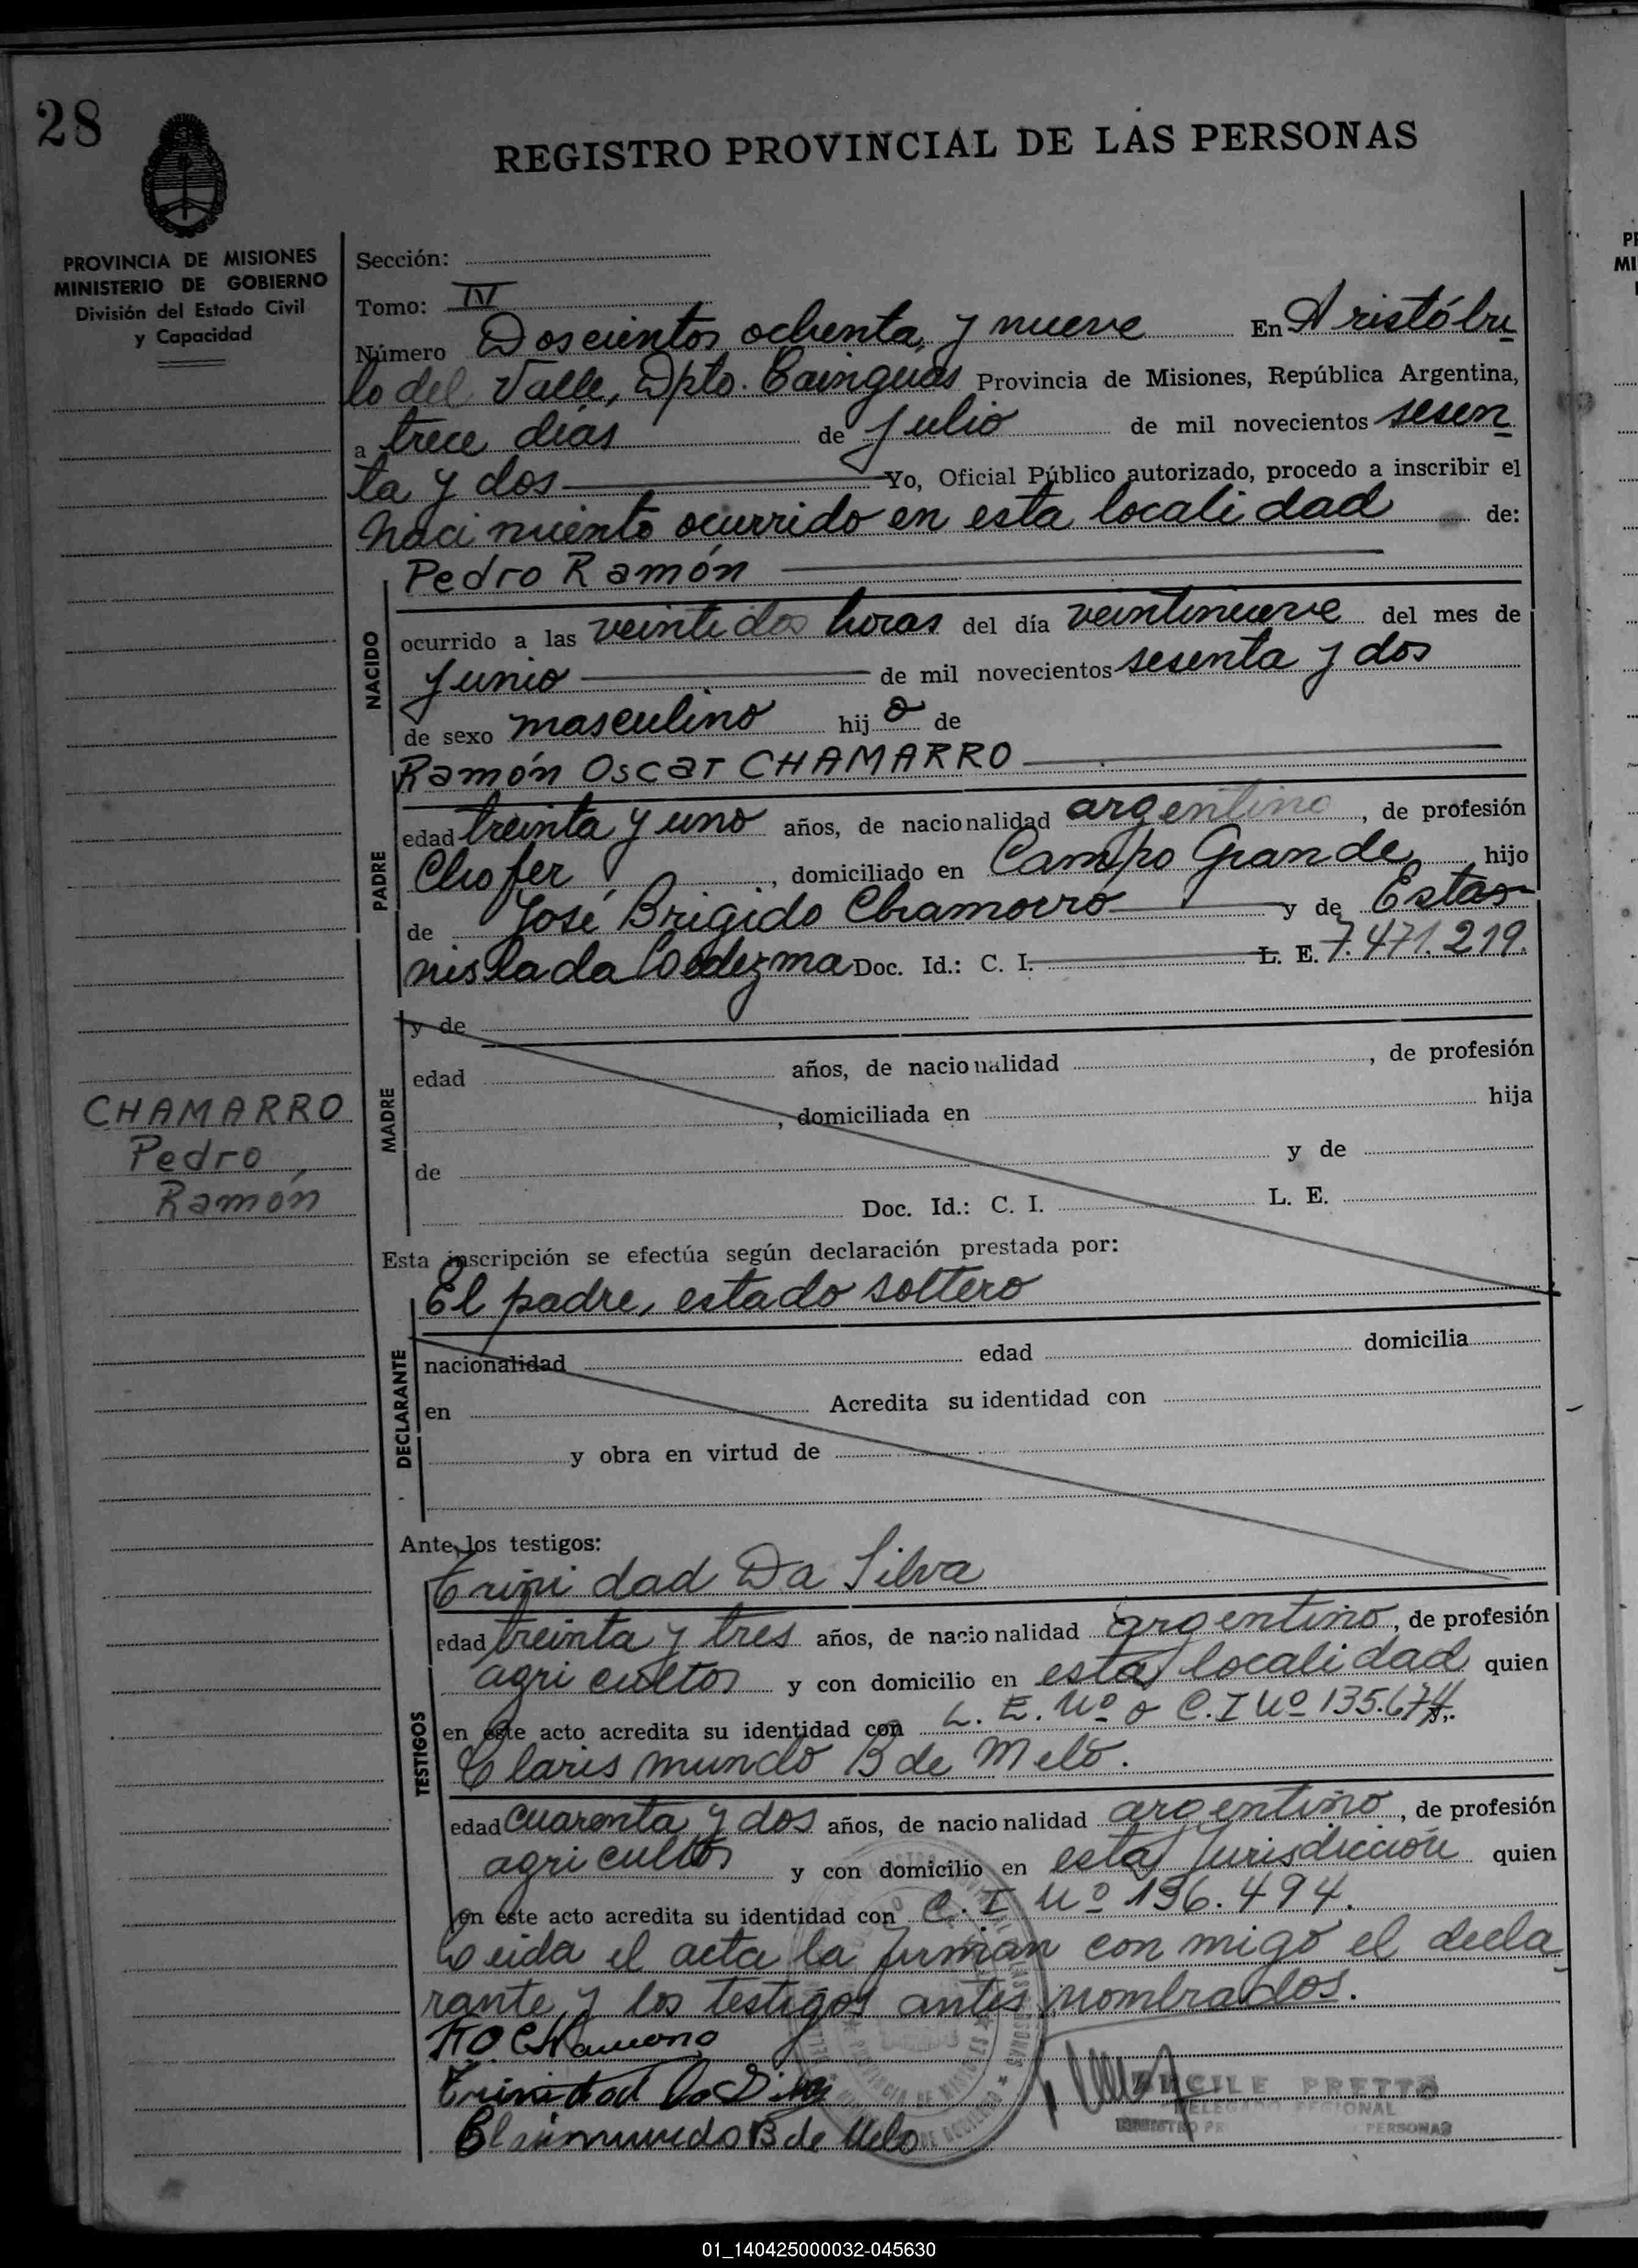 28
REGISTRO PROVINCIAL DE LAS PERSONAS
PROVINCIA DE MISIONES
MINISTERIO DE GOBIERNO
División del Estado Civil
y Capacidad
Sección:
Tomo: IV
Número Doscientos ochenta y nueve En Aristóbu
lo del Valle, Dpto. Cainguás Provincia de Misiones, República Argentina,
a trece dias de Julio de mil novecientos sesen
ta y dos Yo, Oficial Público autorizado, procedo a inscribir el
naci miento ocurrido en esta localidad de:
Pedro Ramón
NACIDO
ocurrido a las veintidos horas del día veintinueve del mes de
Junio de mil novecientos sesenta y dos
de sexo masculino hijo de
Ramón Oscar CHAMARRO
PADRE
edad treinta y uno años, de nacionalidad argentino, de profesión
Chofer, domiciliado en Campo Grande, hijo
de José Brigido Chamorro y de Esta
nislada Ledezma Doc. Id.: C. I. L. E. 7.471.219.
MADRE
y de
edad años, de nacionalidad , de profesión
, domiciliada en hija
de y de
Doc. Id.: C. I. L. E.
CHAMARRO
Pedro
Ramón
Esta inscripción se efectúa según declaración prestada por:
El padre, estado soltero
DECLARANTE
nacionalidad edad domicilia
en Acredita su identidad con
y obra en virtud de
Ante los testigos:
Trini dad Da Silva
TESTIGOS
edad treinta y tres años, de nacionalidad argentino, de profesión
agricultor y con domicilio en esta localidad quien
en este acto acredita su identidad con L. E. Nº o C.I Nº 135.674.
Claris mundo B de Melo.
edad cuarenta y dos años, de nacionalidad argentino, de profesión
agricultor y con domicilio en esta Jurisdicción quien
en este acto acredita su identidad con C. I Nº 196.494.
Leida el acta la firman con migo el decla
rante y los testigos antes nombrados.
R O Chamorro
Trinidad Da Silva
Clarismundo B de Melo
LUCILE PRETTO
DELEGADO REGIONAL
REGISTRO PR PERSONAS
01_140425000032-045630